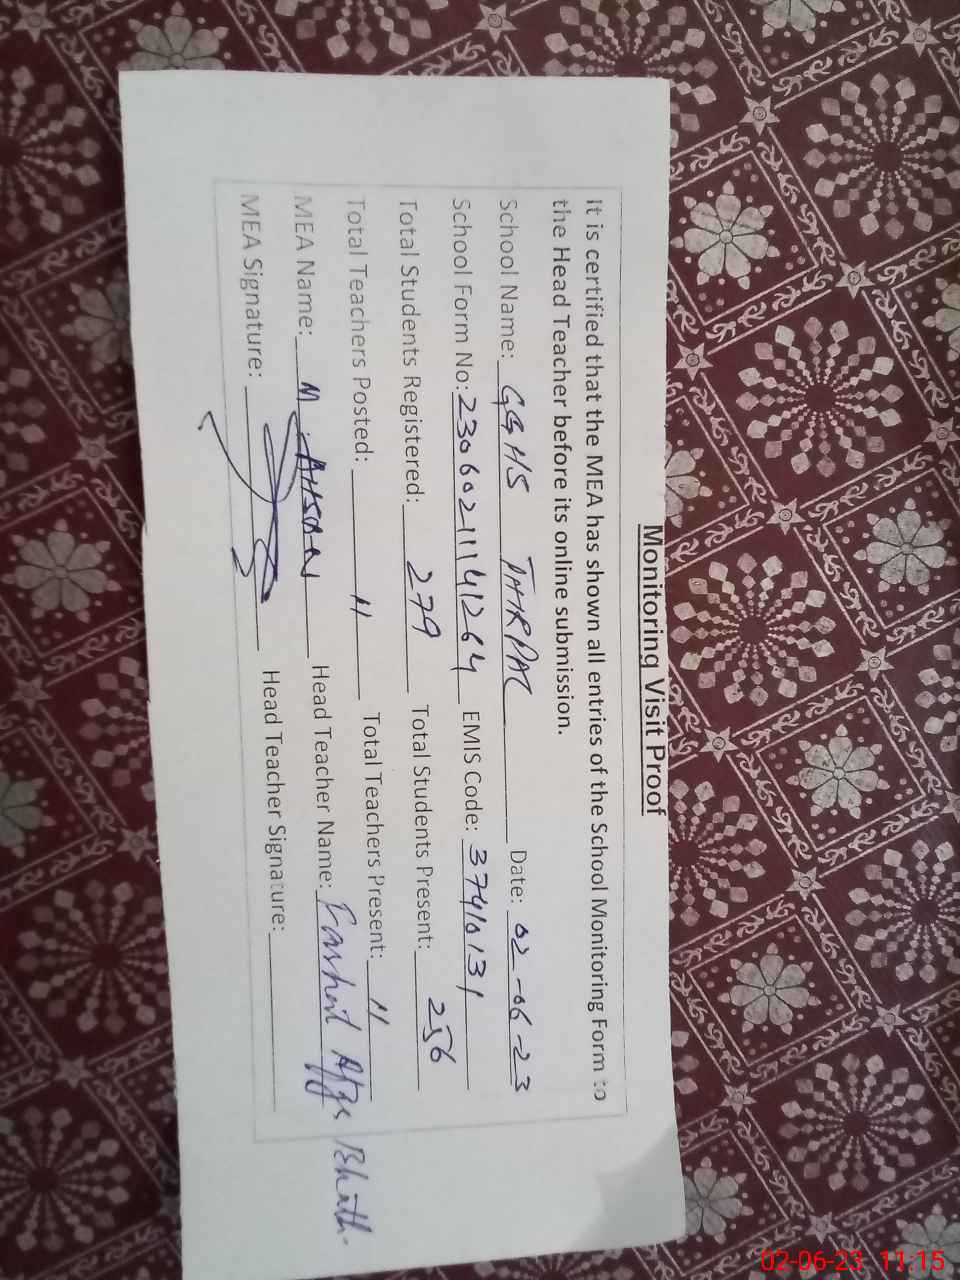 Monitoring Visit Proof
It is certified that the MEA has shown all entries of the School Monitoring Form to
the Head Teacher before its online submission.
School Name: GGHS THRPAL Date: 02-06-23
School Form No: 23060211141264 EMIS Code: 37410131
Total Students Registered: 279 Total Students Present: 256
Total Teachers Posted: 11 Total Teachers Present: 11
MEA Name: M AHSAN Head Teacher Name:
MEA Signature: Head Teacher Signature:
02-06-23 11:15